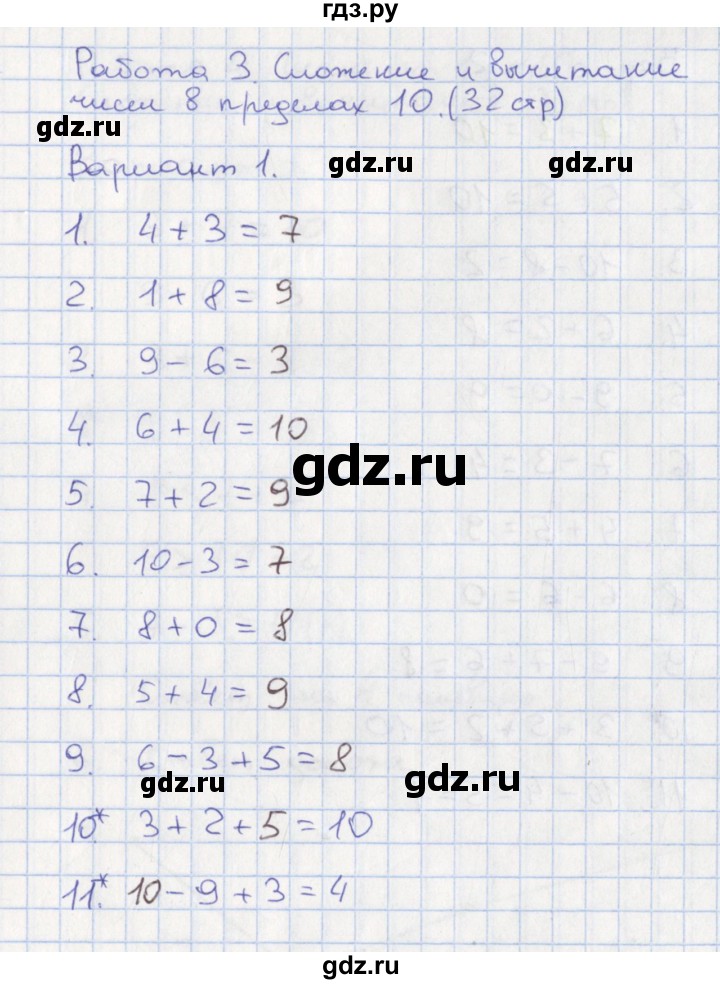 гдз.ру
Работа 3. Сложение и вычитание
чисел в пределах 10. (32 стр)
gdz.ru
Вариант 1.
gdz.ru
gdz.ru
1. 4 + 3 = 7
2. 1 + 8 = 9
3. 9 - 6 = 3
4. 6 + 4 = 10
gdz.ru
5. 7 + 2 = 9
6. 10 - 3 = 7
7. 8 + 0 = 8
8. 5 + 4 = 9
9. 6 - 3 + 5 = 8
gdz.ru
gdz.ru
10.* 3 + 2 + 5 = 10
11.* 10 - 9 + 3 = 4
gdz.ru